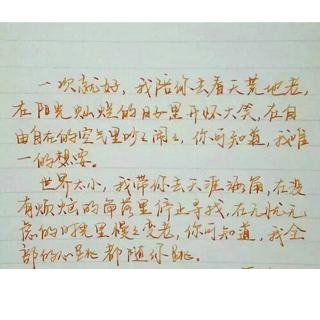 一次就好，我陪你去看天荒地老，
在阳光灿烂的日子里开怀大笑，在自
由自在的空气里吵吵闹闹，你可知道，我唯
一的想要。
世界太小，我带你去天涯海角，在没
有烦恼的角落里停止寻找，在无忧无
虑的时光里慢慢变老，你可知道，我全
部的心跳都随你跳。